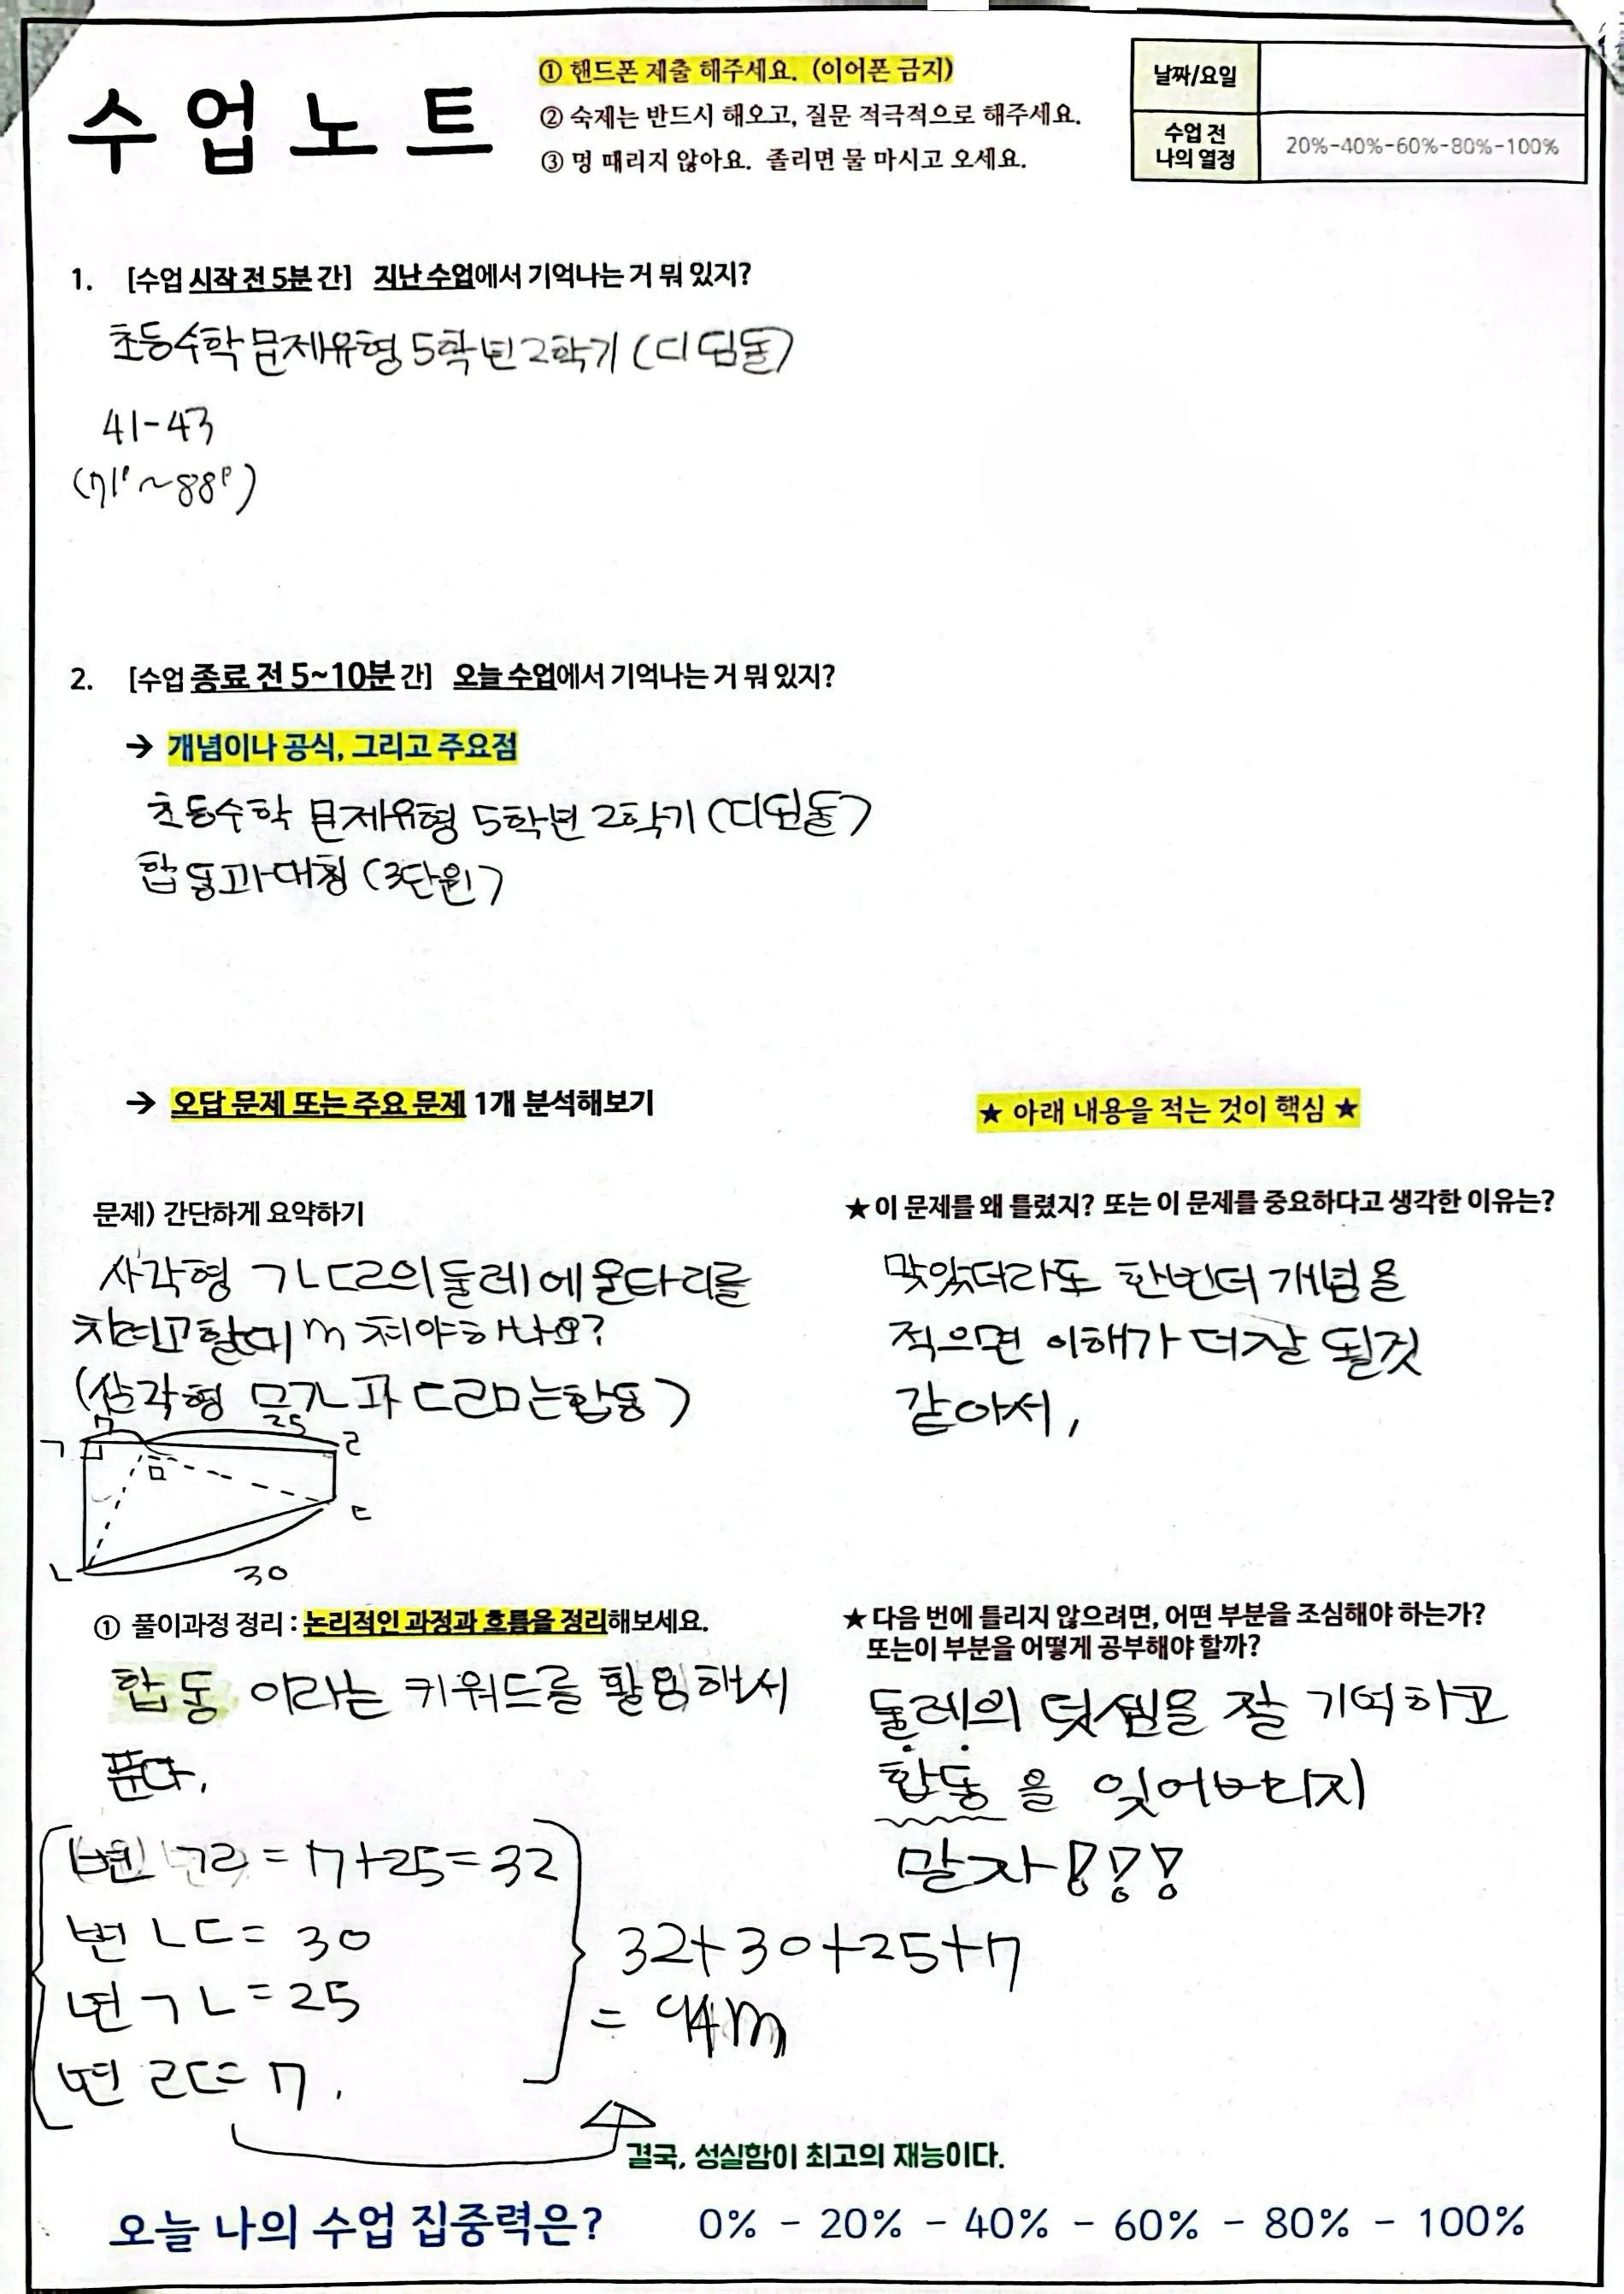 수업노트
① 핸드폰 제출 해주세요. (이어폰 금지)
② 숙제는 반드시 해오고, 질문 적극적으로 해주세요.
③ 멍 때리지 않아요. 졸리면 물 마시고 오세요.
날짜/요일
수업 전
나의 열정
20%-40%-60%-80%-100%
1. [수업 시작 전 5분 간] 지난 수업에서 기억나는 거 뭐 있지?
초등수학 문제유형 5학년 2학기 (디딤돌)
41-43
(71p~88p)
2. [수업 종료 전 5~10분 간] 오늘 수업에서 기억나는 거 뭐 있지?
→ 개념이나 공식, 그리고 주요점
초등수학 문제유형 5학년 2학기 (디딤돌)
합동과 대칭 (3단원)
→ 오답 문제 또는 주요 문제 1개 분석해보기
★ 아래 내용을 적는 것이 핵심 ★
문제) 간단하게 요약하기
사각형 ㄱㄴㄷㄹ의 둘레에 울타리를
치려고 할때 m 쳐야하나요?
(삼각형 ㅁㄱㄴ과 ㄷㄹㅁ는 합동)
7 25
ㄱ ㄹ
ㅁ
ㄷ
ㄴ 30
★ 이 문제를 왜 틀렸지? 또는 이 문제를 중요하다고 생각한 이유는?
맞았더라도 한번더 개념을
적으면 이해가 더 잘 될것
같아서,
① 풀이과정 정리 : 논리적인 과정과 흐름을 정리해보세요.
합동 이라는 키워드를 활용해서
푼다.
변 ㄱㄹ = 7+25=32
변 ㄴㄷ = 30
변 ㄱㄴ = 25
변 ㄹㄷ = 7.
32+30+25+7
= 94m
★ 다음 번에 틀리지 않으려면, 어떤 부분을 조심해야 하는가?
또는이 부분을 어떻게 공부해야 할까?
둘레의 덧셈을 잘 기억하고
합동을 잊어버리지
말자!!!
결국, 성실함이 최고의 재능이다.
오늘 나의 수업 집중력은? 0% - 20% - 40% - 60% - 80% - 100%